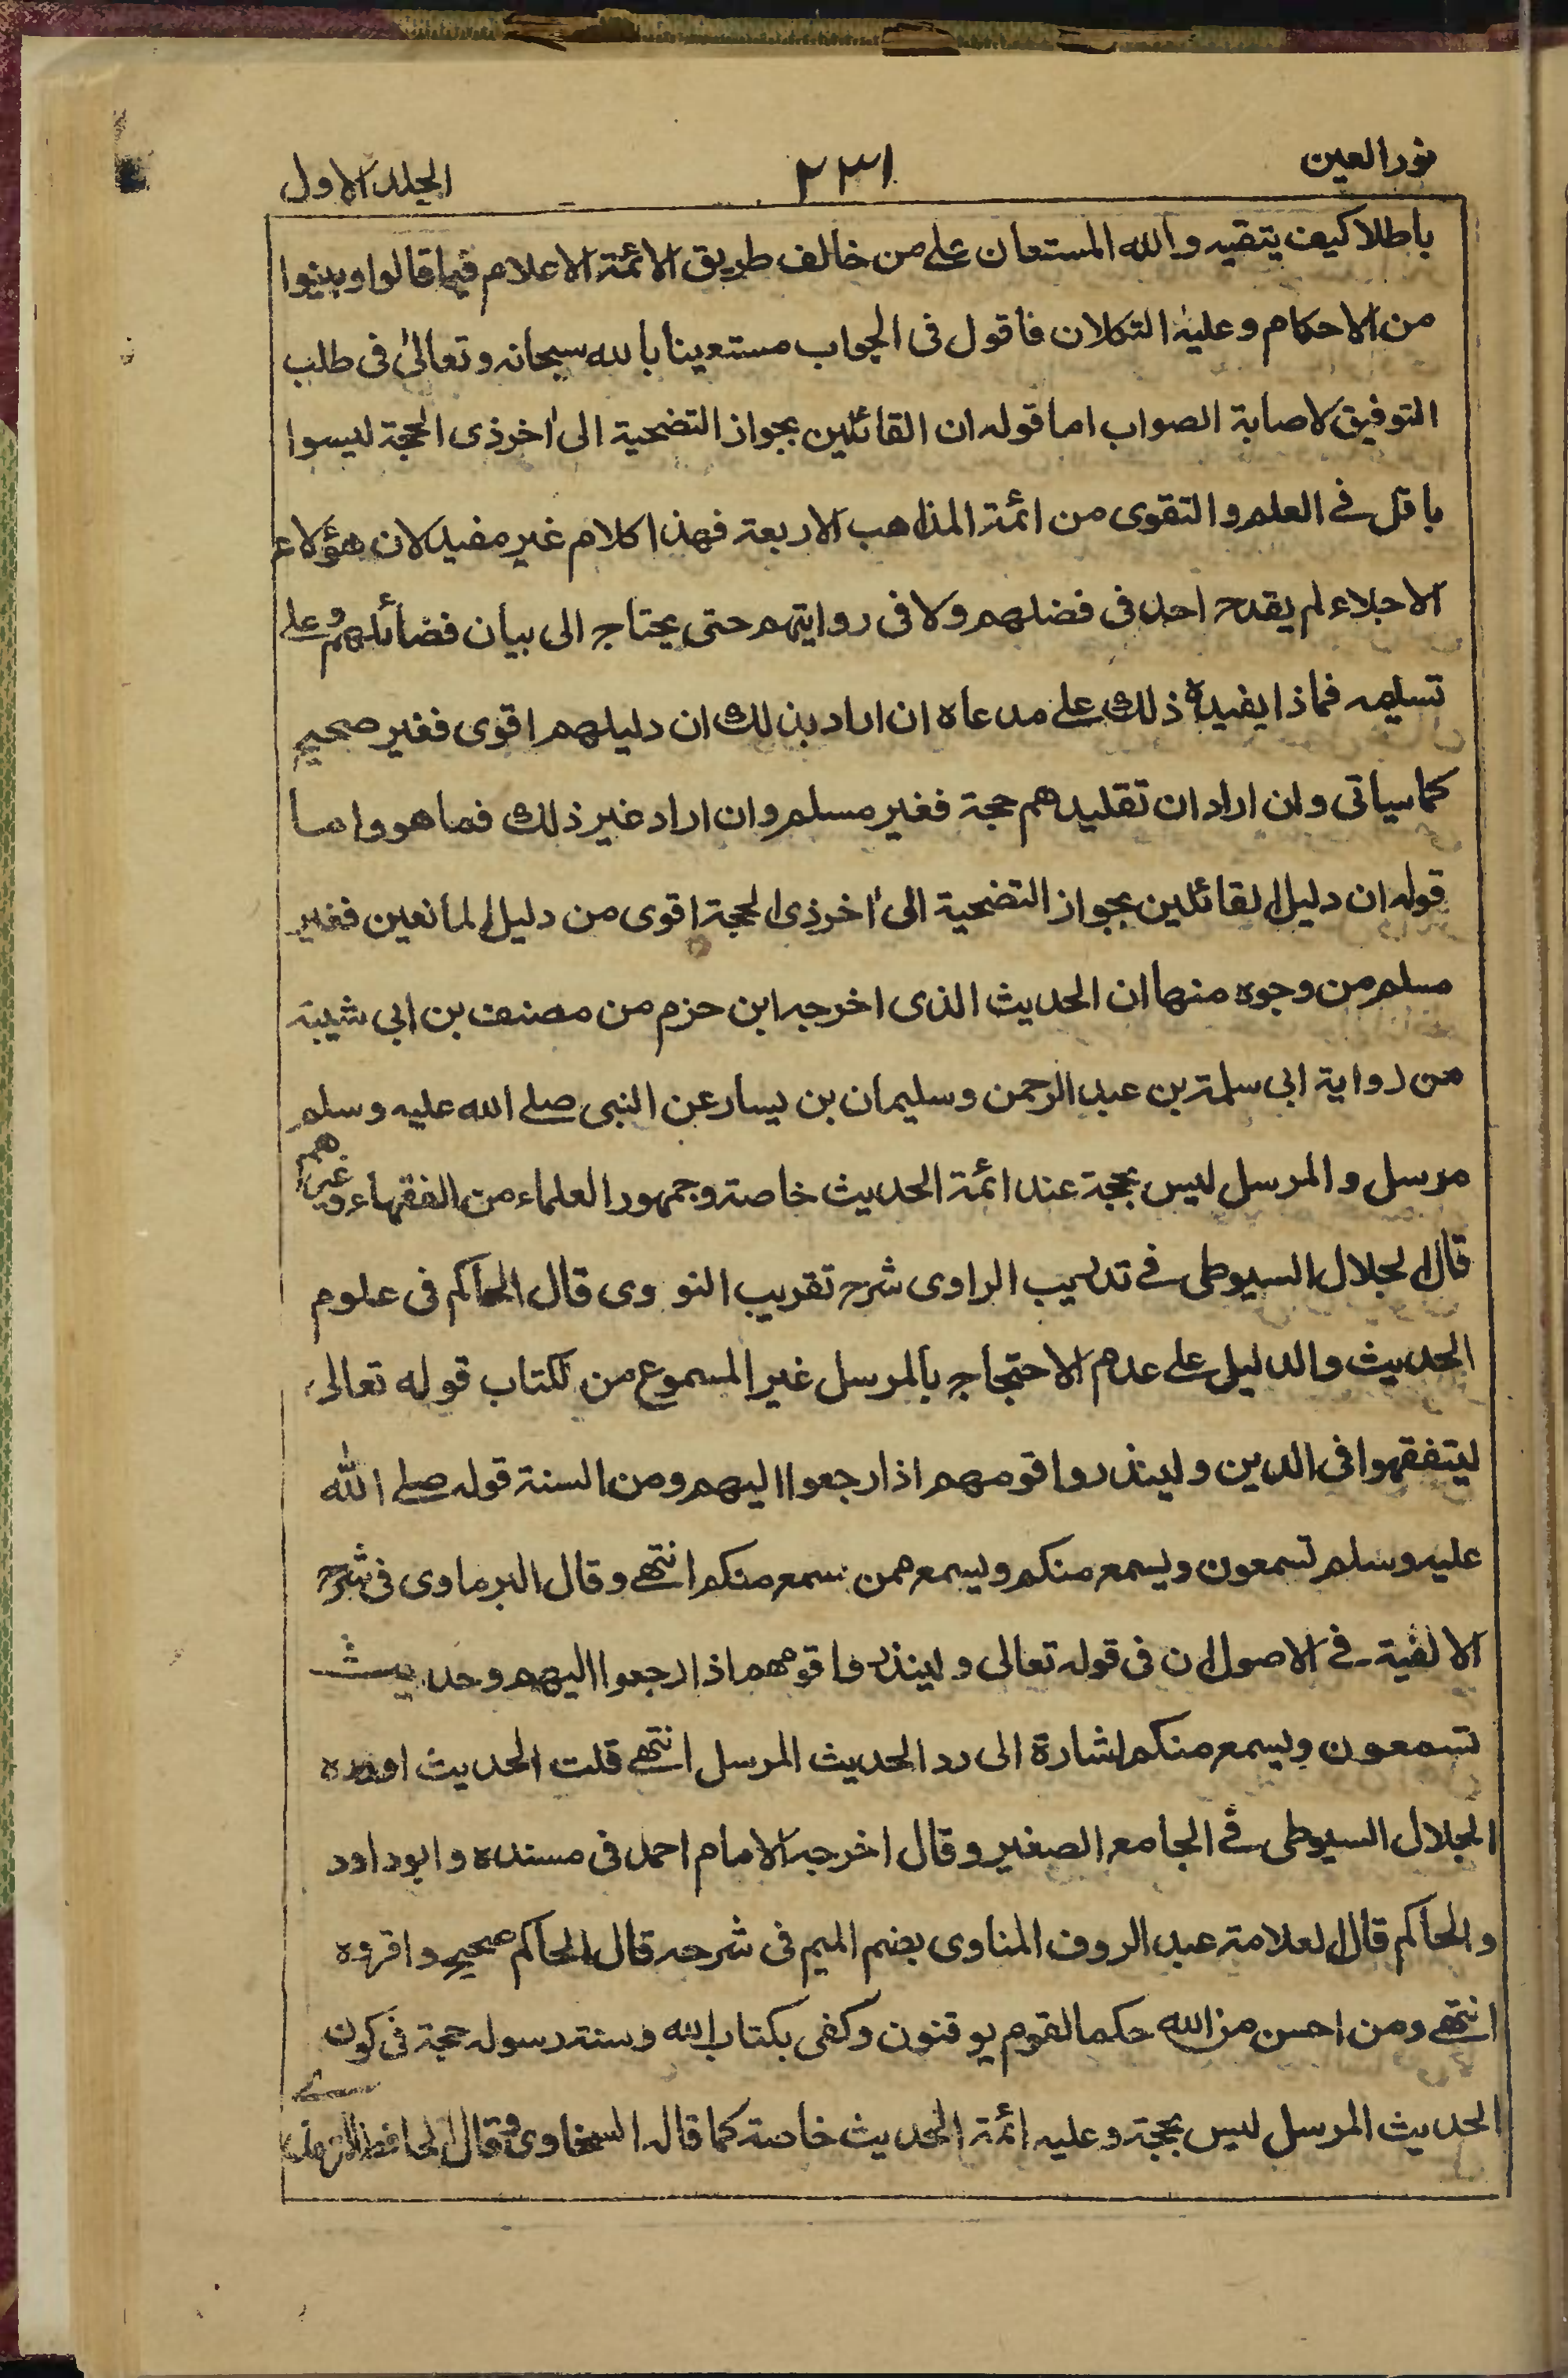 نور العين ٢٣١ الجلد الاول
باطلا كيف يتقيه والله المستعان على من خالف طريق الائمة الاعلام فيما قالوا وبينوا
من الاحكام وعليه التكلان فاقول فى الجواب مستعينا بالله سبحانه وتعالىٰ فى طلب
التوفيق لاصابة الصواب اما قوله ان القائلين بجواز التضحية الى اٰخر ذى الحجة ليسوا
باقل فے العلم والتقوى من ائمة المذاهب الاربعة فهذا كلام غير مفيد لان هؤلاء
الاجلاء لم يقدح احد فى فضلهم ولا فى روايتهم حتى يحتاج الى بيان فضائلهم وعلى
تسليمه فماذا يفيده ذلك على مدعاه ان اراد بذلك ان دليلهم اقوى فغير صحيح
كما سياتى وان اراد ان تقليدهم حجة فغير مسلم وان اراد غير ذلك فما هو واما
قوله ان دليل القائلين بجواز التضحية الى اٰخر ذى الحجة اقوى من دليل المانعين فغير
مسلم من وجوه منها ان الحديث الذى اخرجه ابن حزم من مصنف بن ابى شيبة
من رواية ابى سلمة بن عبد الرحمن وسليمان بن يسار عن النبى صلے الله عليه وسلم
مرسل والمرسل ليس بحجة عند ائمة الحديث خاصة وجمهور العلماء من الفقهاء وغيرهم
قال الجلال السيوطى فے تدريب الراوى شرح تقريب النووى قال الحاكم فى علوم
الحديث والدليل على عدم الاحتجاج بالمرسل غير المسموع من الكتاب قوله تعالى
ليتفقهوا فى الدين ولينذروا قومهم اذا رجعوا اليهم ومن السنة قوله صلے الله
عليه وسلم تسمعون ويسمع منكم ويسمع ممن سمع منكم انتهے وقال البرماوى فى شرح
الالفية فے الاصول ان فى قوله تعالى ولينذروا قومهم اذا رجعوا اليهم وحديث
تسمعون ويسمع منكم اشارة الى رد الحديث المرسل انتهے قلت الحديث اورده
الجلال السيوطى فے الجامع الصغير وقال اخرجه الامام احمد فى مسنده وابو داود
والحاكم قال العلامة عبد الروف المناوى بضم الميم فى شرحه قال الحاكم صحيح واقروه
انتهے ومن احسن من الله حكما لقوم يوقنون وكفى بكتاب الله وسنة رسوله حجة فى كون
الحديث المرسل ليس بحجة وعليه ائمة الحديث خاصة كما قاله السخاوى وقال الحافظ